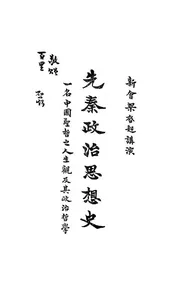 新會梁啓超講演
先秦政治思想史
一名中國聖哲之人生觀及其政治哲學
敬頌
百里